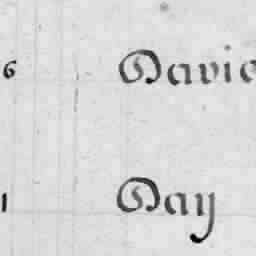 6 Davis
1 Day